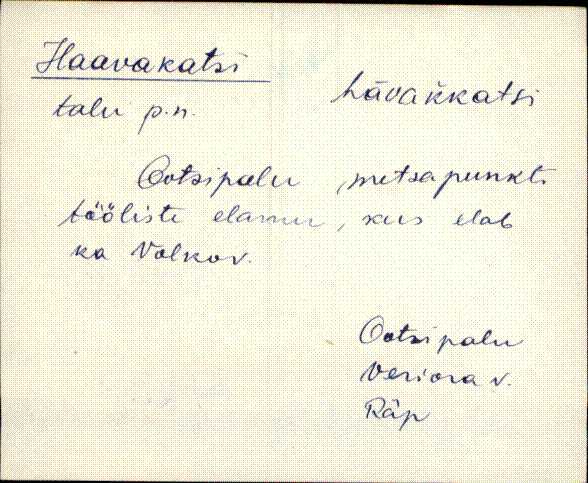 Haavakatsi
hāvaʾkkatsi
talu p.n.
Ootsipalu metsapunkti
tööliste elamu, kus elab
ka Volkov.
Ootsipalu
Veriora v.
Räp